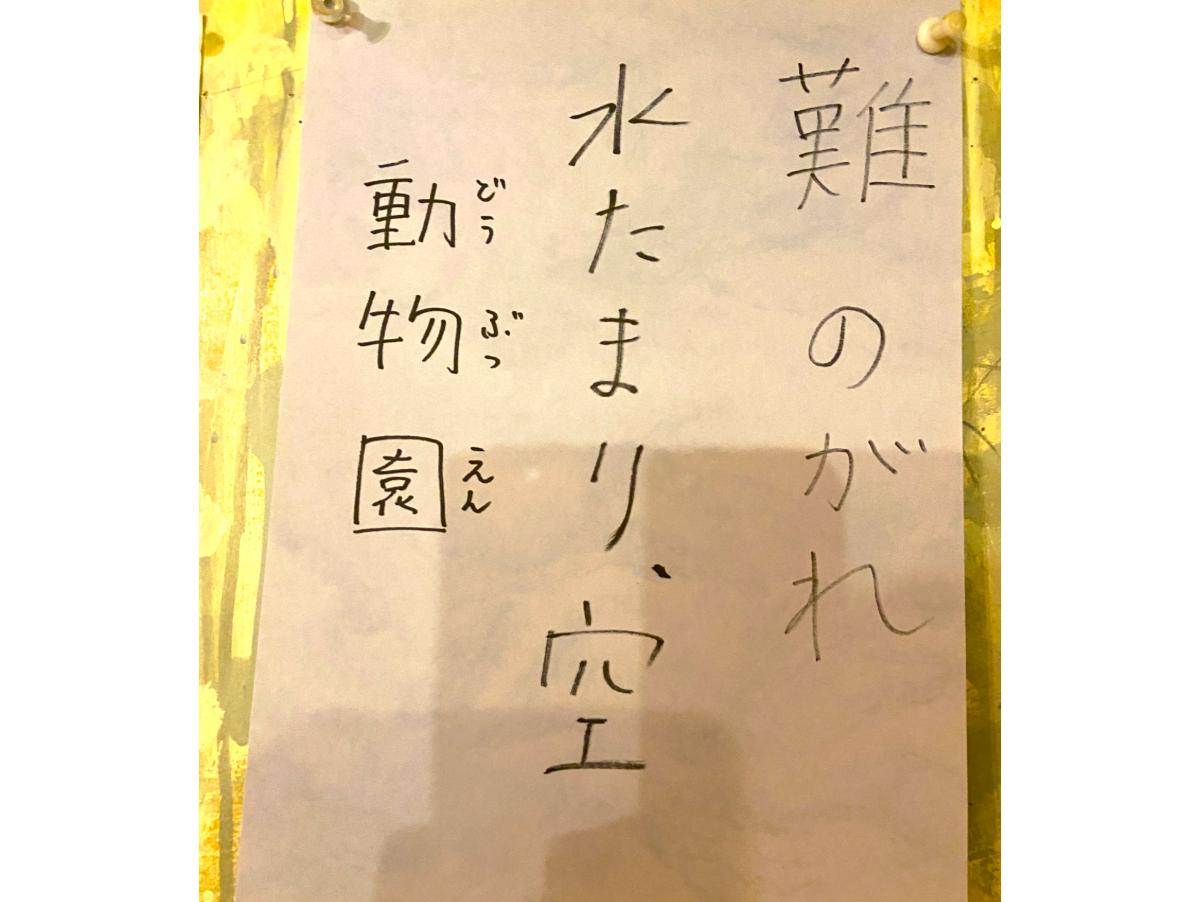 難のがれ
水たまり、空
動物園
どうぶつえん